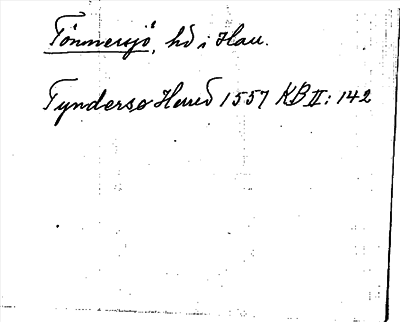 Tönnersjö, hd i Hall.
Tyndersø Herred 1557 KB II: 142